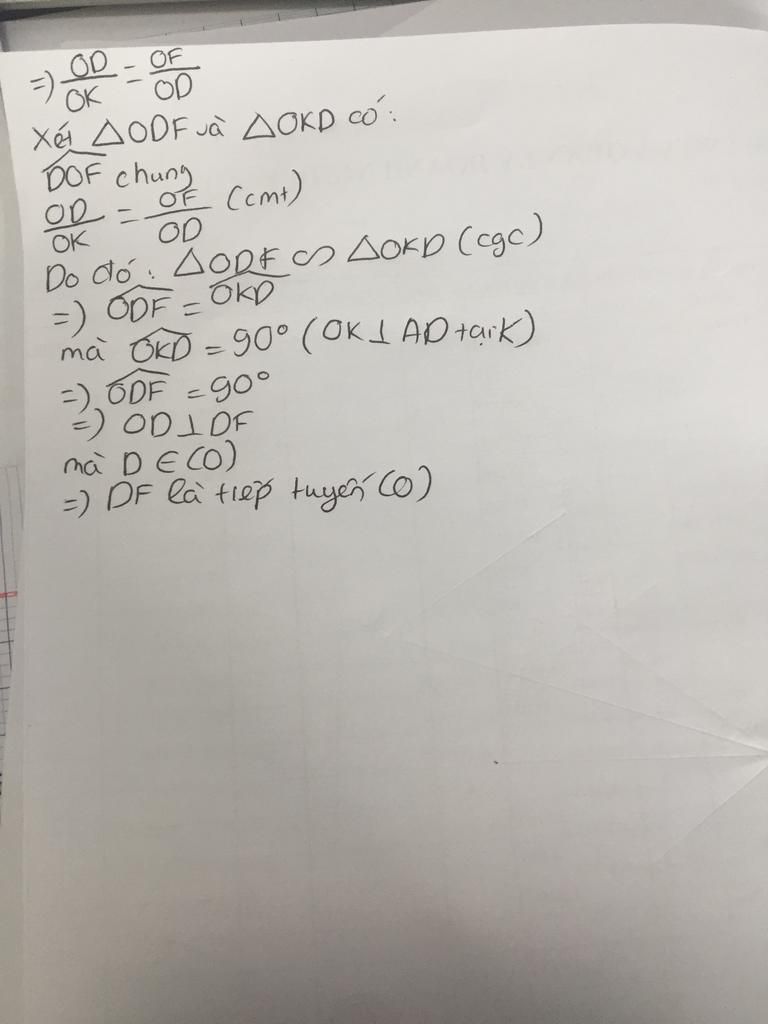 =) OD/OK = OF/OD
Xét △ODF và △OKD có:
DOF chung
OD/OK = OF/OD (cmt)
Do đó: △ODF ∽ △OKD (cgc)
=) ODF = OKD
mà OKD = 90° (OK⊥AD tại K)
=) ODF = 90°
=) OD⊥DF
mà D∈(O)
=) DF là tiếp tuyến (O)